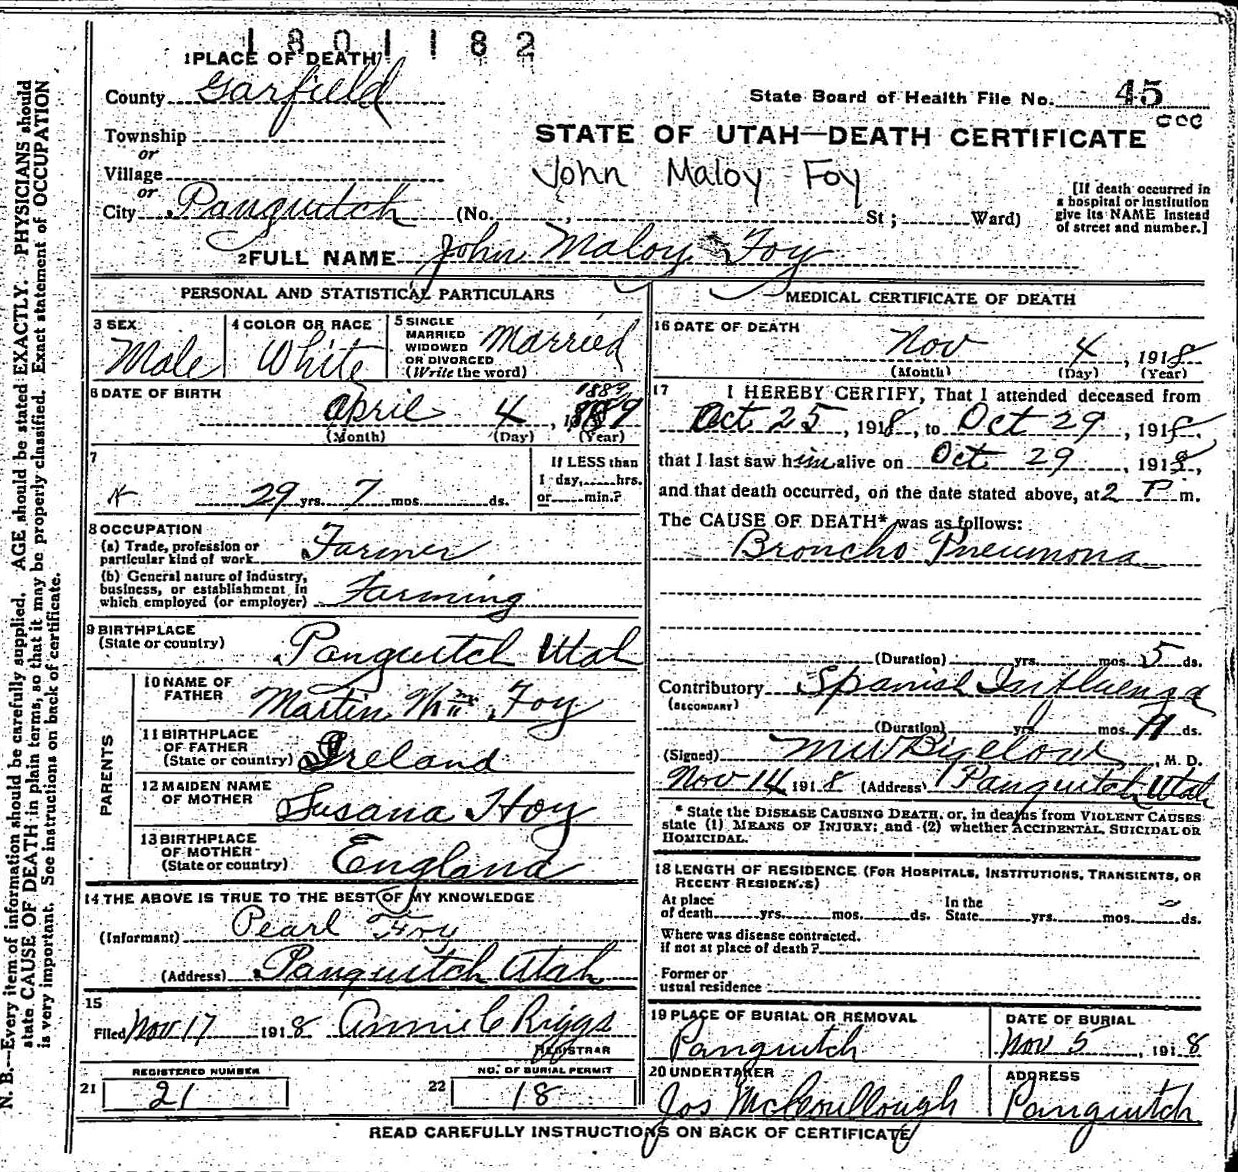 1801182
1 PLACE OF DEATH
County Garfield
State Board of Health File No. 45
CCC
Township
or
STATE OF UTAH—DEATH CERTIFICATE
Village
or
John Maloy Foy
City Panguitch (No. , St; Ward)
[If death occurred in
a hospital or institution
give its NAME instead
of street and number.]
2 FULL NAME John Maloy Foy
PERSONAL AND STATISTICAL PARTICULARS
3 SEX
Male
4 COLOR OR RACE
White
5 SINGLE
MARRIED
WIDOWED
OR DIVORCED
(Write the word)
Married
6 DATE OF BIRTH
1889
April 4, 1889
(Month) (Day) (Year)
7
29 yrs. 7 mos. ds.
If LESS than
1 day, hrs.
or min.?
8 OCCUPATION
(a) Trade, profession or
particular kind of work Farmer
(b) General nature of industry,
business, or establishment in
which employed (or employer) Farming
9 BIRTHPLACE
(State or country) Panguitch Utah
PARENTS
10 NAME OF
FATHER Martin Wm Foy
11 BIRTHPLACE
OF FATHER
(State or country) Ireland
12 MAIDEN NAME
OF MOTHER Susana Hoy
13 BIRTHPLACE
OF MOTHER
(State or country) England
14 THE ABOVE IS TRUE TO THE BEST OF MY KNOWLEDGE
(Informant) Pearl Foy
(Address) Panguitch Utah
15
Filed Nov 17 1918 Annie C Riggs
REGISTRAR
REGISTERED NUMBER
21 21
NO. OF BURIAL PERMIT
22 18
MEDICAL CERTIFICATE OF DEATH
16 DATE OF DEATH
Nov 4, 1918
(Month) (Day) (Year)
17 I HEREBY CERTIFY, That I attended deceased from
Oct 25, 1918, to Oct 29, 1918,
that I last saw him alive on Oct 29, 1918,
and that death occurred, on the date stated above, at 2 P m.
The CAUSE OF DEATH* was as follows:
Broncho Pneumona
(Duration) yrs. mos. 5 ds.
Contributory Spanish Influenza
(SECONDARY)
(Duration) yrs. mos. 11 ds.
(Signed) M W Bigelow, M. D.
Nov 14 1918 (Address) Panguitch Utah
* State the DISEASE CAUSING DEATH, or, in deaths from VIOLENT CAUSES
state (1) MEANS OF INJURY; and (2) whether ACCIDENTAL, SUICIDAL OR
HOMICIDAL.
18 LENGTH OF RESIDENCE (FOR HOSPITALS, INSTITUTIONS, TRANSIENTS, OR
RECENT RESIDENTS)
At place
of death yrs. mos. ds.
In the
State yrs. mos. ds.
Where was disease contracted,
if not at place of death?
Former or
usual residence
19 PLACE OF BURIAL OR REMOVAL
Panguitch
DATE OF BURIAL
Nov 5, 1918
20 UNDERTAKER
Jos McCoullough
ADDRESS
Panguitch
READ CAREFULLY INSTRUCTIONS ON BACK OF CERTIFICATE
N. B.—Every item of information should be carefully supplied. AGE should be stated EXACTLY. PHYSICIANS should
state CAUSE OF DEATH in plain terms, so that it may be properly classified. Exact statement of OCCUPATION
is very important. See instructions on back of certificate.